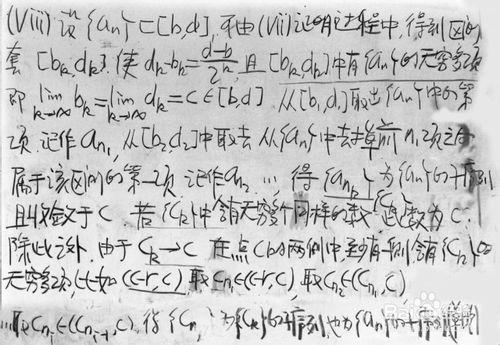 (Viii) 设 {an}⊂[b,d], 和由(Vii)证明过程中,得到区间
套 [bk,dk], 使 dk-bk=(d-b)/2^k 且 [bk,dk]中有{an}的无穷多项
即 lim k→∞ bk=lim k→∞ dk=c∈[b,d] 从[b1,d1]取出{an}中的第
项 记作 an1, 从[b2,d2]中取去 从{an}中去掉前 n1项之后
属于该区间的第一项 记作 an2 … 得 {ank} 为{an}的子序列
且收敛于 c 若 {ck}中含有无穷多个同样的数 这数为 c
除此之外 由于 ck→c 在点 c 的两侧中至少有一侧含有{cn}的
无穷多项,比如 (c-r,c) 取 cn1∈(c-r,c), 取 cn2∈(cn1,c)
…取 cni∈(cni-1,c), 得 {cn} 为{ck}的子序列 也为{an}的子序列
Baidu